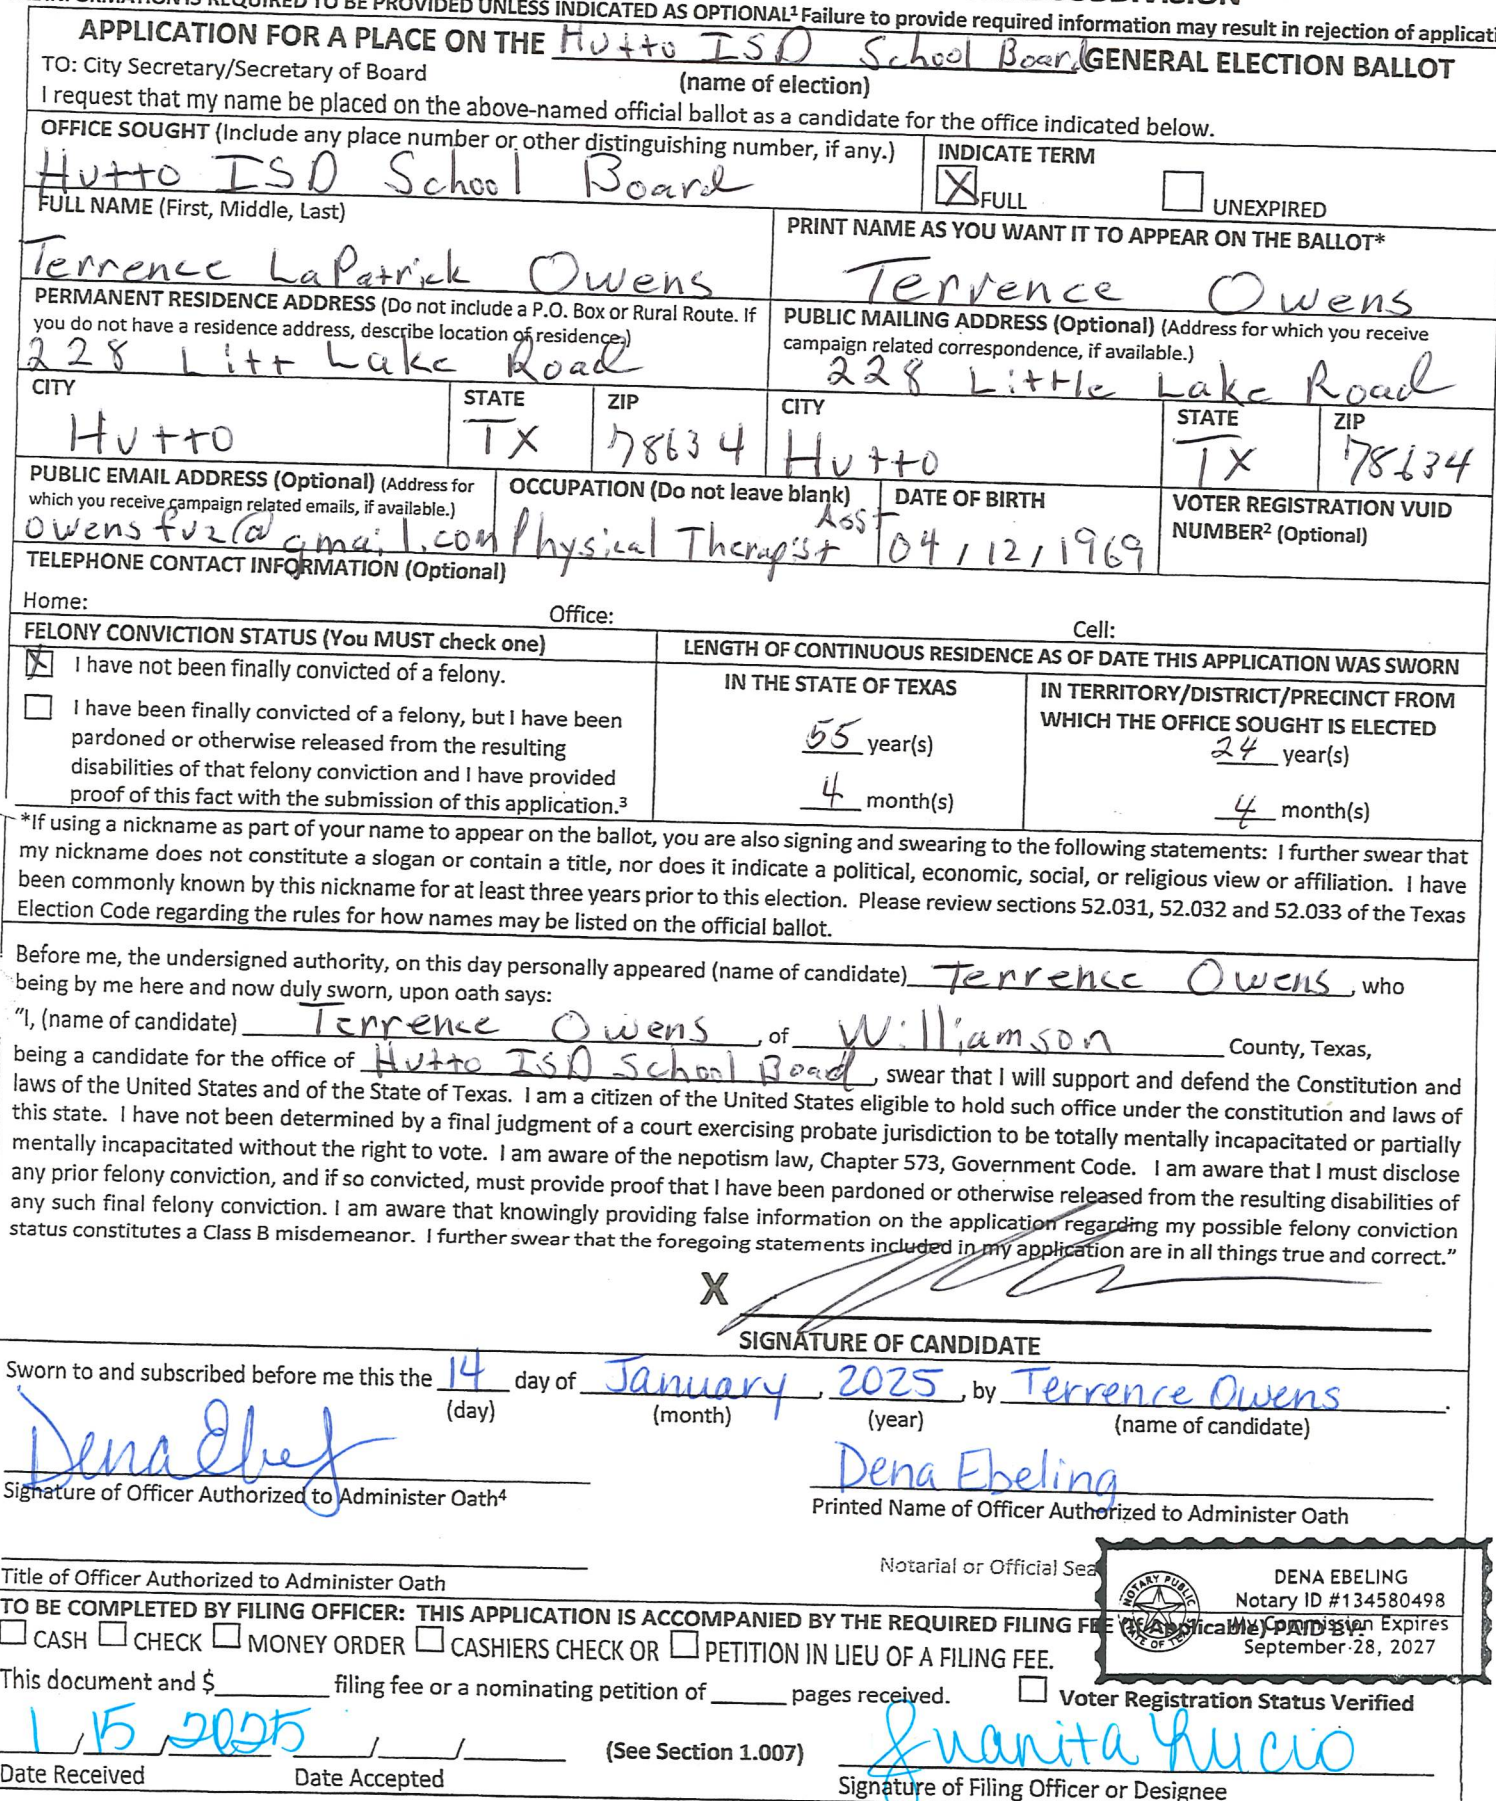 INFORMATION IS REQUIRED TO BE PROVIDED UNLESS INDICATED AS OPTIONAL¹ Failure to provide required information may result in rejection of applicati
APPLICATION FOR A PLACE ON THE Hutto ISD School Board GENERAL ELECTION BALLOT
TO: City Secretary/Secretary of Board (name of election)
I request that my name be placed on the above-named official ballot as a candidate for the office indicated below.
OFFICE SOUGHT (Include any place number or other distinguishing number, if any.) INDICATE TERM
Hutto ISD School Board X FULL UNEXPIRED
FULL NAME (First, Middle, Last) PRINT NAME AS YOU WANT IT TO APPEAR ON THE BALLOT*
Terrence LaPatrick Owens Terrence Owens
PERMANENT RESIDENCE ADDRESS (Do not include a P.O. Box or Rural Route. If you do not have a residence address, describe location of residence.)
228 Litt Lake Road
PUBLIC MAILING ADDRESS (Optional) (Address for which you receive campaign related correspondence, if available.)
228 Little Lake Road
CITY STATE ZIP CITY STATE ZIP
Hutto TX 78634 Hutto TX 78634
PUBLIC EMAIL ADDRESS (Optional) (Address for which you receive campaign related emails, if available.)
owensfv2@gmail.com
OCCUPATION (Do not leave blank)
Physical Therapist Asst
DATE OF BIRTH
04/12/1969
VOTER REGISTRATION VUID NUMBER² (Optional)
TELEPHONE CONTACT INFORMATION (Optional)
Home: Office: Cell:
FELONY CONVICTION STATUS (You MUST check one)
X I have not been finally convicted of a felony.
I have been finally convicted of a felony, but I have been
pardoned or otherwise released from the resulting
disabilities of that felony conviction and I have provided
proof of this fact with the submission of this application.³
LENGTH OF CONTINUOUS RESIDENCE AS OF DATE THIS APPLICATION WAS SWORN
IN THE STATE OF TEXAS
55 year(s)
4 month(s)
IN TERRITORY/DISTRICT/PRECINCT FROM
WHICH THE OFFICE SOUGHT IS ELECTED
24 year(s)
4 month(s)
*If using a nickname as part of your name to appear on the ballot, you are also signing and swearing to the following statements: I further swear that
my nickname does not constitute a slogan or contain a title, nor does it indicate a political, economic, social, or religious view or affiliation. I have
been commonly known by this nickname for at least three years prior to this election. Please review sections 52.031, 52.032 and 52.033 of the Texas
Election Code regarding the rules for how names may be listed on the official ballot.
Before me, the undersigned authority, on this day personally appeared (name of candidate) Terrence Owens, who
being by me here and now duly sworn, upon oath says:
"I, (name of candidate) Terrence Owens, of Williamson County, Texas,
being a candidate for the office of Hutto ISD School Boad, swear that I will support and defend the Constitution and
laws of the United States and of the State of Texas. I am a citizen of the United States eligible to hold such office under the constitution and laws of
this state. I have not been determined by a final judgment of a court exercising probate jurisdiction to be totally mentally incapacitated or partially
mentally incapacitated without the right to vote. I am aware of the nepotism law, Chapter 573, Government Code. I am aware that I must disclose
any prior felony conviction, and if so convicted, must provide proof that I have been pardoned or otherwise released from the resulting disabilities of
any such final felony conviction. I am aware that knowingly providing false information on the application regarding my possible felony conviction
status constitutes a Class B misdemeanor. I further swear that the foregoing statements included in my application are in all things true and correct."
X
SIGNATURE OF CANDIDATE
Sworn to and subscribed before me this the 14 day of January, 2025, by Terrence Owens.
(day) (month) (year) (name of candidate)
Dena Ebeling
Signature of Officer Authorized to Administer Oath⁴ Printed Name of Officer Authorized to Administer Oath
Notarial or Official Sea
Title of Officer Authorized to Administer Oath
DENA EBELING
Notary ID #134580498
My Commission Expires
September 28, 2027
NOTARY PUBLIC
STATE OF TEXAS
TO BE COMPLETED BY FILING OFFICER: THIS APPLICATION IS ACCOMPANIED BY THE REQUIRED FILING FEE (If Applicable) PAID BY:
CASH CHECK MONEY ORDER CASHIERS CHECK OR PETITION IN LIEU OF A FILING FEE.
This document and $ filing fee or a nominating petition of pages received. Voter Registration Status Verified
1/15/2025 / / (See Section 1.007) Juanita Lucio
Date Received Date Accepted Signature of Filing Officer or Designee